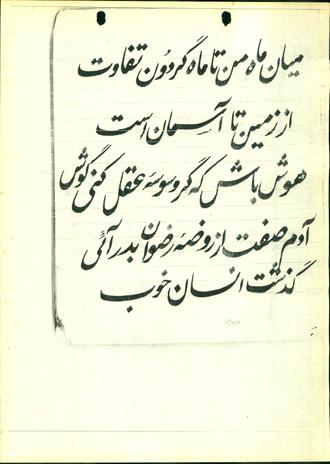 میان ماه من تا ماه گردون تفاوت
از زمین تا آسمان است
هوش باش که گر وسوسه عقل کنی گوش
آدم صفت از روضه رضوان بدر آئی
گذشت انسان خوب